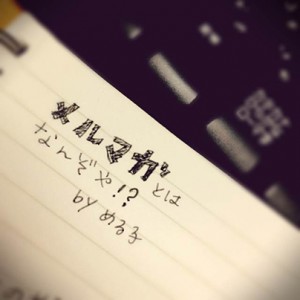 メルマガとは
なんぞや!?
by める子